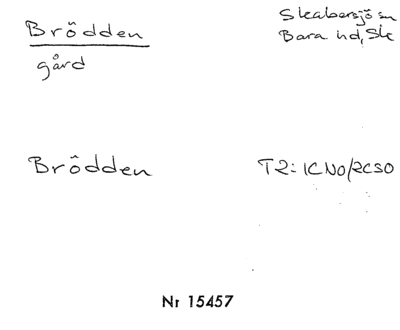 Brödden
gård
Skabersjö sn
Bara hd, Sk
Brödden
T2: 1CNO/2CSO
Nr 15457